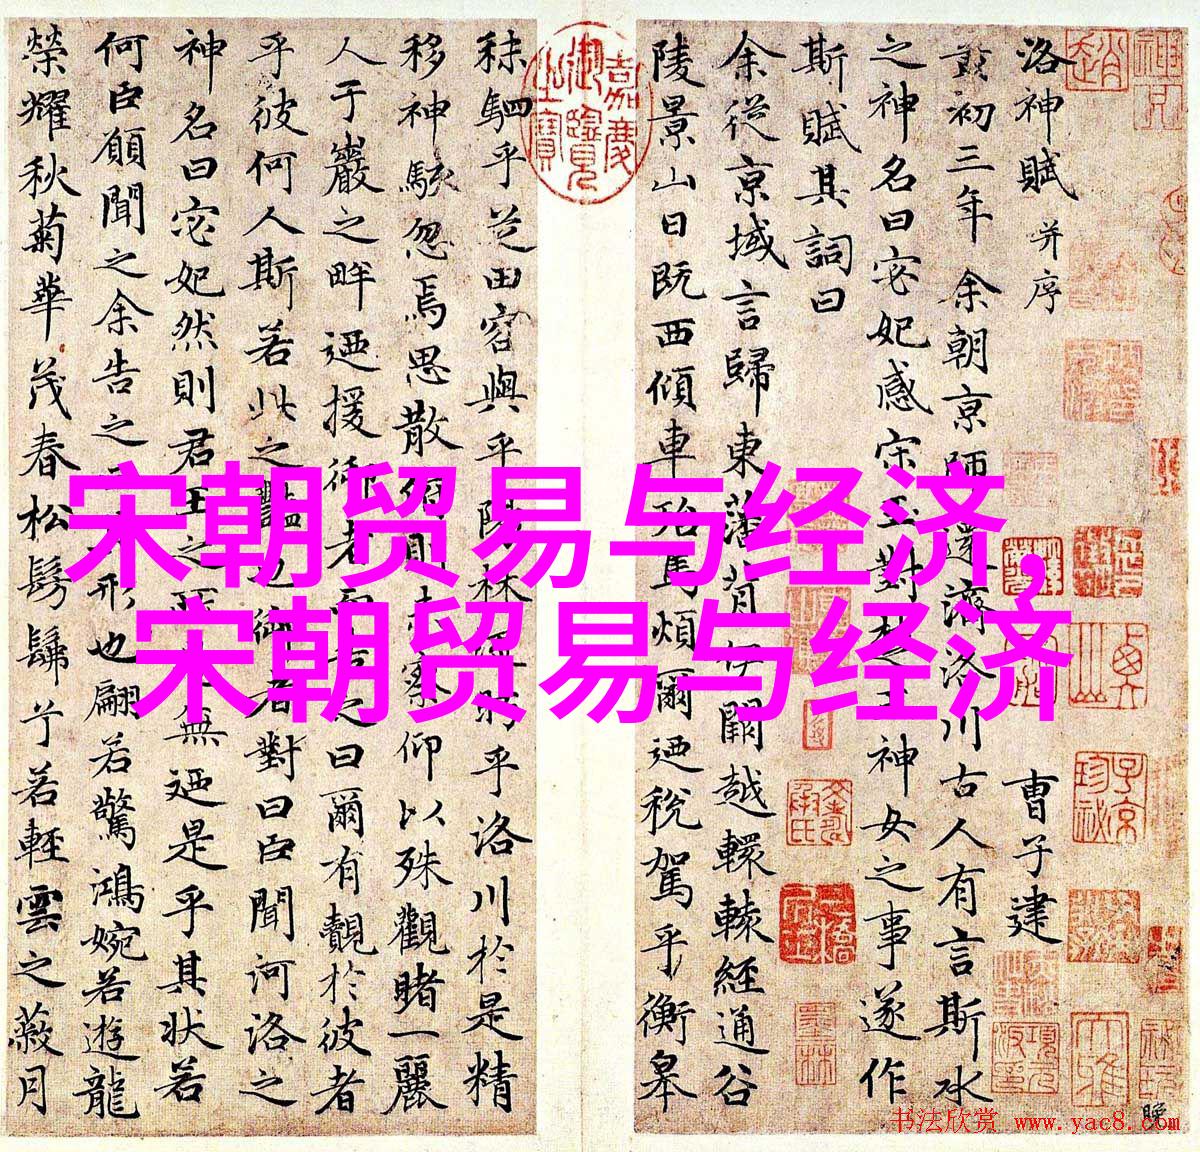 宋朝贸易与经济,
宋朝贸易与经济
洛神賦 并序 曹子建
初三年余朝京師還濟洛川古人有言斯水
之神名曰宓妃感宋玉對楚王神女之事遂作
斯賦其詞曰
余從京域言歸東藩背伊闕越轘轅經通谷
陵景山日既西傾車殆馬煩爾迺稅駕乎衡皋
秣駟乎芝田容與乎陽林流眄乎洛川於是精
移神駭忽焉思散俯則未察仰以殊觀睹一麗
人于巖之畔迺援御者而告之曰爾有覿於彼者
乎彼何人斯若此之豔也御者對曰臣聞河洛之
神名曰宓妃然則君王之所見無迺是乎其狀若
何臣願聞之余告之曰形也翩若驚鴻婉若遊龍
榮耀秋菊華茂春松髣髴兮若輕雲之蔽月
嘉慶御覽之寶
书法欣赏 www.yac8.com